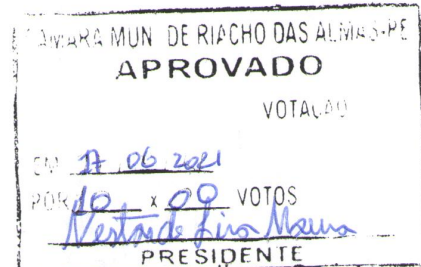 CAMARA MUN DE RIACHO DAS ALMAS-PE
APROVADO
VOTAÇÃO
EM 17 06 2021
POR 10 x 00 VOTOS
PRESIDENTE